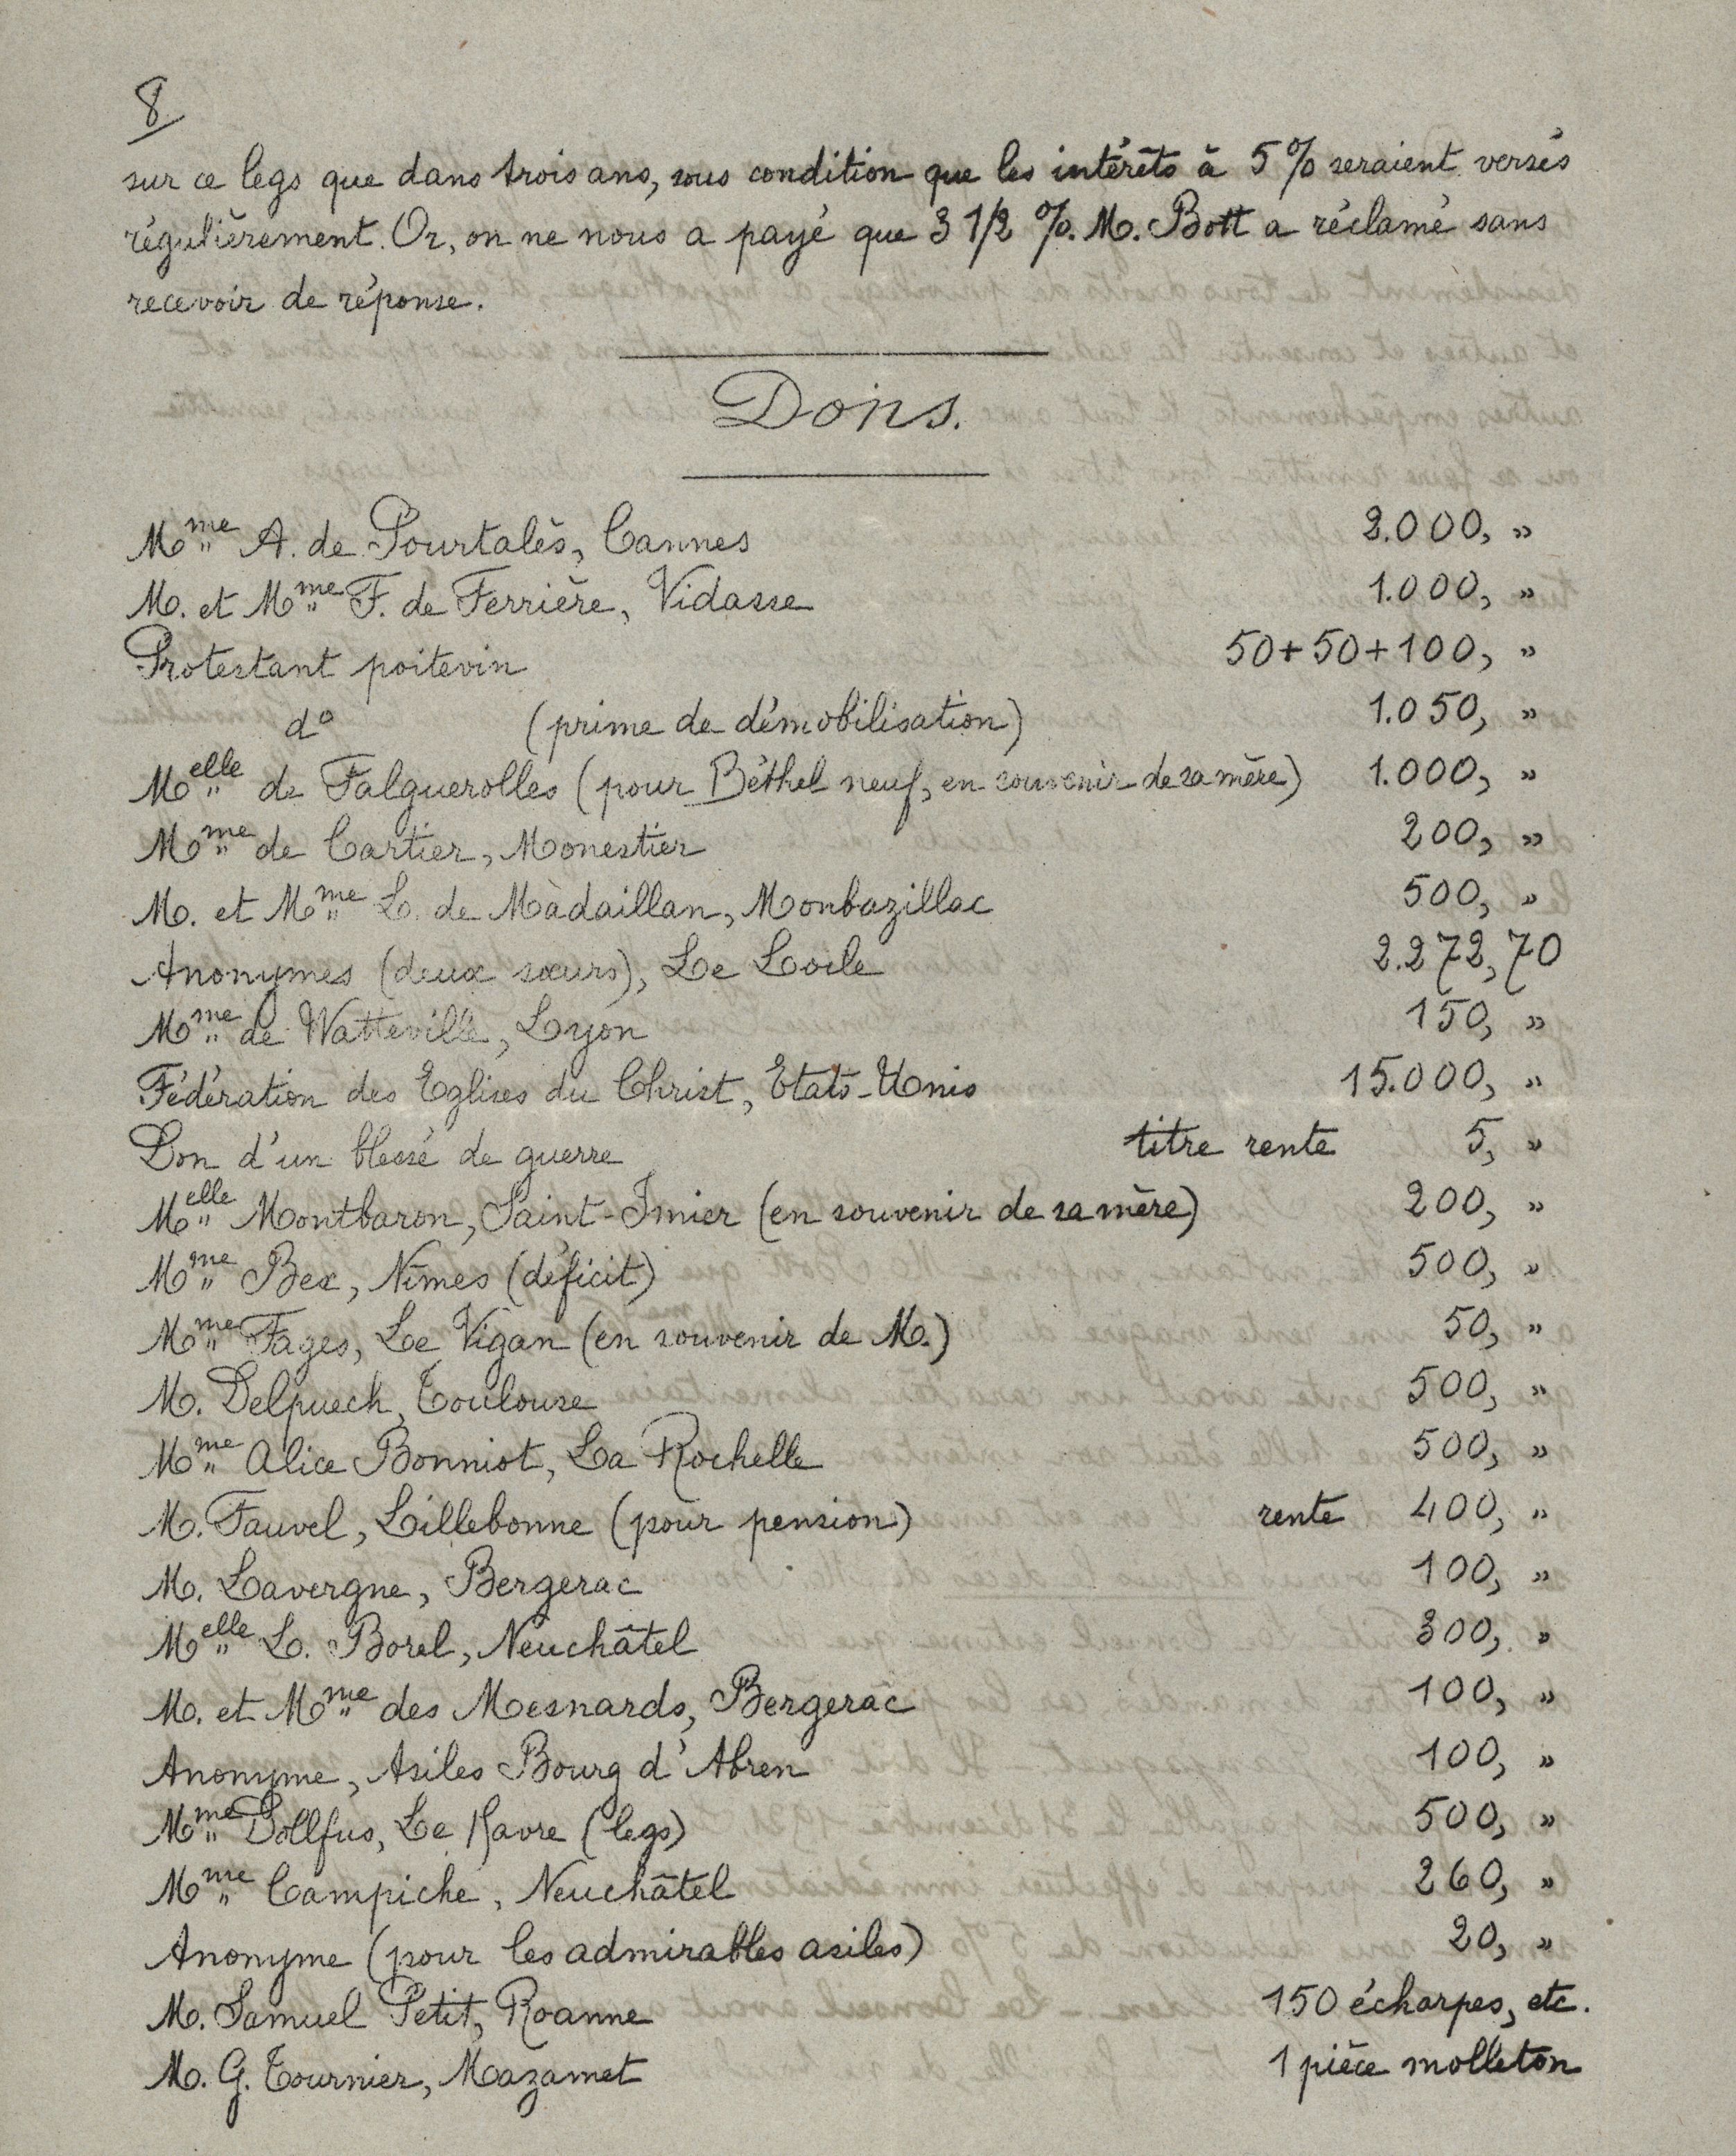 8
sur ce legs que dans trois ans, sous condition que les intérêts à 5 % seraient versés
régulièrement. Or, on ne nous a payé que 3 1/2 %. M. Bott a réclamé sans
recevoir de réponse.
Dons.
Mme A. de Pourtalès, Cannes 2.000, "
M. et Mme F. de Ferrière, Vidasse 1.000, "
Protestant poitevin 50+50+100, "
do (prime de démobilisation) 1.050, "
Melle de Falguerolles (pour Béthel neuf, en souvenir de sa mère) 1.000, "
Mme de Cartier, Monestier 200, "
M. et Mme L. de Màdaillan, Monbazillac 500, "
Anonymes (deux sœurs), Le Locle 2.272,70
Mme de Watteville, Lyon 150, "
Fédération des Eglises du Christ, Etats-Unis 15.000, "
Don d'un blessé de guerre titre rente 5, "
Melle Montbaron, Saint-Imier (en souvenir de sa mère) 200, "
Mme Bex, Nîmes (déficit) 500, "
Mme Fages, Le Vigan (en souvenir de M.) 50, "
M. Delpuech, Toulouse 500, "
Mme Alice Bonniot, La Rochelle 500, "
M. Fauvel, Lillebonne (pour pension) rente 400, "
M. Lavergne, Bergerac 100, "
Melle L. Borel, Neuchâtel 300, "
M. et Mme des Mesnards, Bergerac 100, "
Anonyme, Asiles Bourg d'Abren 100, "
Mme Dollfus, Le Havre (legs) 500, "
Mme Campiche, Neuchâtel 260, "
Anonyme (pour les admirables asiles) 20, "
M. Samuel Petit, Roanne 150 écharpes, etc.
M. G. Tournier, Mazamet 1 pièce molleton